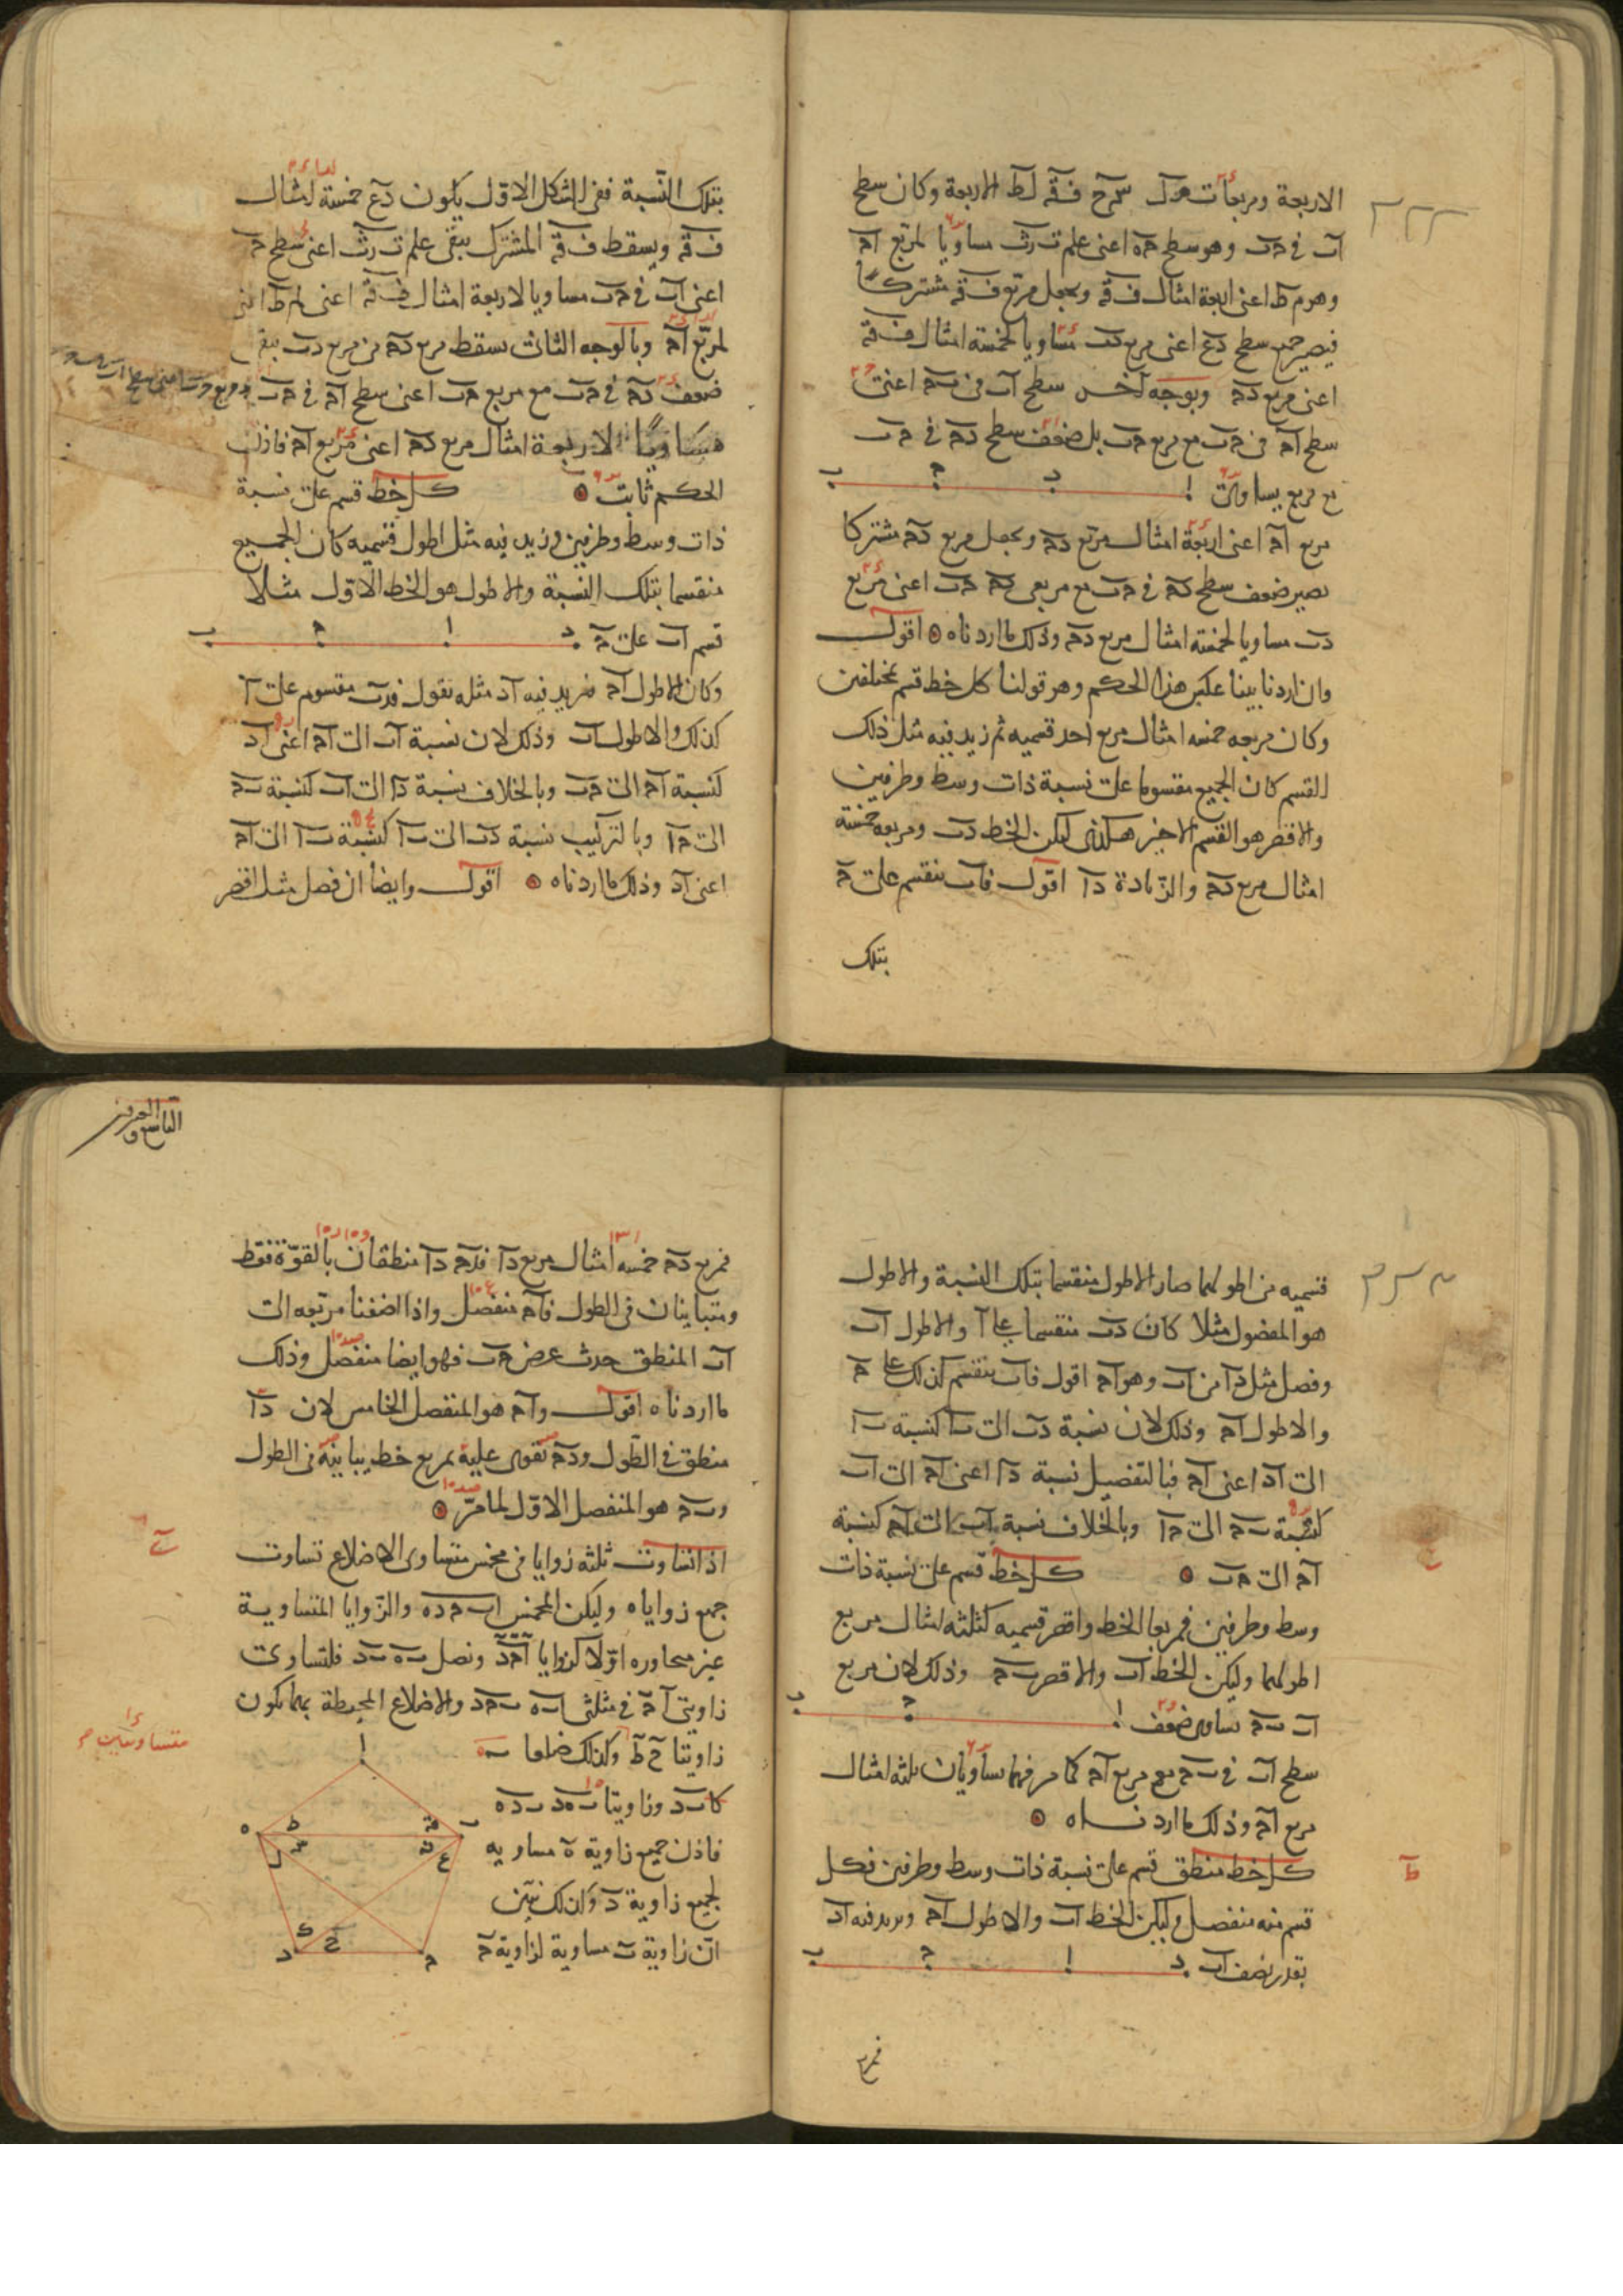 الاربعة ومربعات سرح ف ق لط الاربعة وكان سطح
آب فى حب وهو سطح حه اعنى علم ت رث مساويا لمربع آح
وهو م ط اعنى اربعة امثال ف ق ويجعل مربع ف ق مشتركا
فيصير جميع سطح دع اعنى مربع دب مساويا لخمسة امثال ف ق
اعنى مربع دح وبوجه آخر سطح آب فى بح اعنى
سطح آح فى حب مع مربع حب بل ضعف سطح دح فى حب
مع مربع يساوى
ا د ح ب
مربع آح اعنى اربعة امثال مربع دح ويجعل مربع دح مشتركا
يصير ضعف سطح دح فى حب مع مربعى دح حب اعنى مربع
دب مساويا لخمسة امثال مربع دح وذلك ما اردناه اقول
وان اردنا بينا عكس هذا الحكم وهو قولنا كل خط قسم بمختلفين
وكان مربعه خمسه امثال مربع احد قسميه ثم زيد فيه مثل ذلك
القسم كان الجميع مقسوما على نسبة ذات وسط وطرفين
والاقصر هو القسم الاخير هكذا ليكن الخط دب ومربعه خمسة
امثال مربع دح والزيادة دآ اقول فآب ينقسم على ح
بتلك
بتلك النسبة ففى الشكل الاول يكون دع خمسة امثال
ف ق ويسقط ف ق المشترك يبقى علم ت رث اعنى سطح حه
اعنى آب فى حب مساويا لاربعة امثال ف ق اعنى لم ط اعنى
لمربع آح وبالوجه الثانى يسقط مربع دح من مربع دب يبقى
ضعف دح فى حب مع مربع حب اعنى سطح آح فى حب
مساويا لاربعة امثال مربع دح اعنى مربع آح فاذن
الحكم ثابت كل خط قسم على نسبة
ذات وسط وطرفين وزيد فيه مثل اطول قسميه كان الجميع
منقسما بتلك النسبة والاطول هو الخط الاول مثلا
قسم آب على ح
د ا ح ب
وكان الاطول آح فزيد فيه آد مثله نقول فدب مقسوم على آ
كذلك والاطول آب وذلك لان نسبة آب الى آح اعنى آد
كنسبة آح الى حب وبالخلاف نسبة دآ الى آب كنسبة بح
الى حآ وبالتركيب نسبة دب الى بآ كنسبة بآ الى آح
اعنى آد وذلك ما اردناه اقول وايضا ان فصل مثل اقصر
قسميه من اطولهما صار الاطول منقسما بتلك النسبة والاطول
هو المفضول مثلا كان دب منقسما على آ والاطول آب
وفصل مثل دآ من آب وهو آح اقول فآب ينقسم كذلك على ح
والاطول آح وذلك لان نسبة دب الى بآ كنسبة بآ
الى آد اعنى آح فبالتفصيل نسبة دآ اعنى آح الى آب
كنسبة بح الى حآ وبالخلاف نسبة آب الى آح كنسبة
آح الى حب كل خط قسم على نسبة ذات
وسط وطرفين فمربعا الخط واقصر قسميه كثلثه امثال مربع
اطولهما وليكن الخط آب والاقصر بح وذلك لان مربع
آب بح يساوى ضعف
ا ح ب
سطح آب فى بح مع مربع آح كما مر فهما يساويان ثلثه امثال
مربع آح وذلك ما اردناه
ط
كل خط منطق قسم على نسبة ذات وسط وطرفين فكل
قسم منه منفصل وليكن الخط آب والاطول آح ونزيد فيه آد
بقدر نصف آب
د ا ح ب
فمربع
فمربع دح خمسه امثال مربع دآ فدح دآ منطقان بالقوة فقط
ومتباينان فى الطول فآح منفصل واذا اضفنا مربعه الى
آب المنطق حدث عرض حب فهو ايضا منفصل وذلك
ما اردناه اقول وآح هو المنفصل الخامس لان دآ
منطق فى الطول ودح تقوى عليه بمربع خط يباينه فى الطول
وبح هو المنفصل الاول لما مر
اذا تساوت ثلثه زوايا فى مخمس متساوى الاضلاع تساوت
جميع زواياه وليكن المخمس اب ح ده والزوايا المتساوية
غير متجاوره اولا كزوايا آ ح د ونصل به بد فلتساوى
زاويتى آح فى مثلثى ابه بحد والاضلاع المحيطة بهما يكون
زاويتا ح ط وكذلك ضلعا به
كا بد وزاويتا بهد بده
فاذن جميع زاوية ه مساويه
لجميع زاوية د وكذلك نبين
ان زاوية ب مساوية لزاوية ح